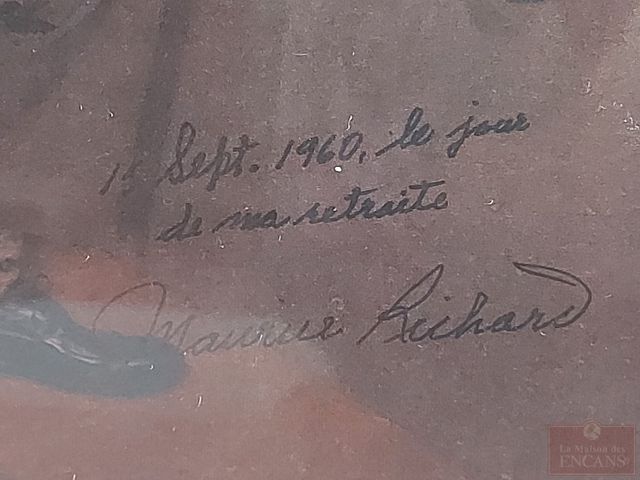 15 Sept. 1960, le jour
de ma retraite
Maurice Richard
La Maison des
ENCANS